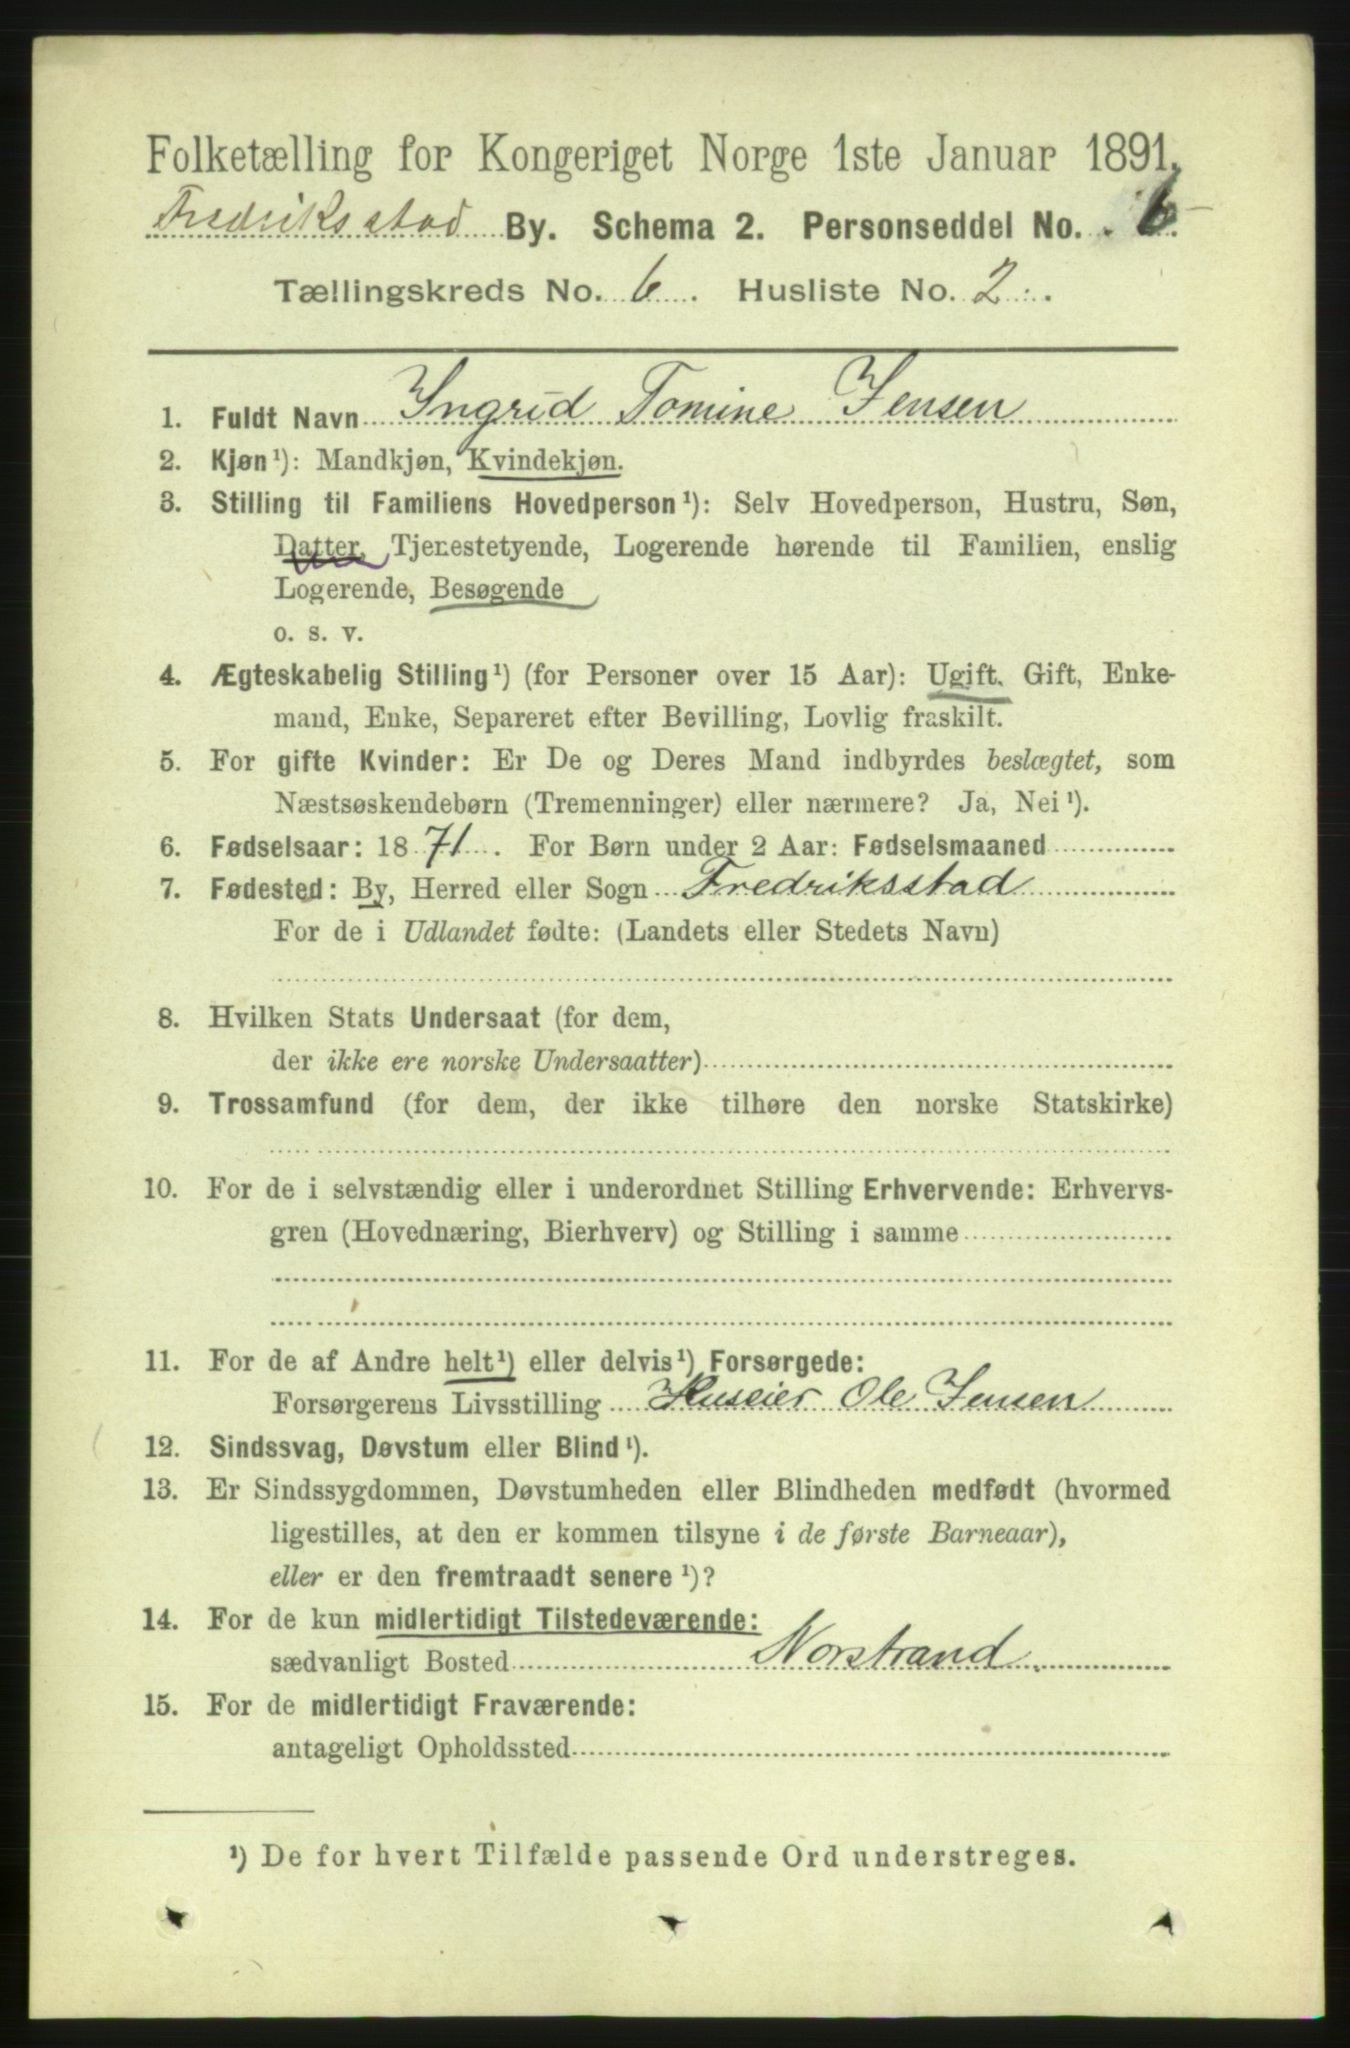 Folketælling for Kongeriget Norge 1ste Januar 1891.
Fredriksstad By. Schema 2. Personseddel No. 6
Tællingskreds No. 6. Husliste No. 2.
1. Fuldt Navn Ingrid Tomine Jensen
2. Kjøn¹): Mandkjøn, Kvindekjøn.
3. Stilling til Familiens Hovedperson¹): Selv Hovedperson, Hustru, Søn,
Datter, Tjenestetyende, Logerende hørende til Familien, enslig
Logerende, Besøgende
o. s. v.
4. Ægteskabelig Stilling¹) (for Personer over 15 Aar): Ugift, Gift, Enke-
mand, Enke, Separeret efter Bevilling, Lovlig fraskilt.
5. For gifte Kvinder: Er De og Deres Mand indbyrdes beslægtet, som
Næstsøskendebørn (Tremenninger) eller nærmere? Ja, Nei¹).
6. Fødselsaar: 1871. For Børn under 2 Aar: Fødselsmaaned
7. Fødested: By, Herred eller Sogn Fredriksstad
For de i Udlandet fødte: (Landets eller Stedets Navn)
8. Hvilken Stats Undersaat (for dem,
der ikke ere norske Undersaatter)
9. Trossamfund (for dem, der ikke tilhøre den norske Statskirke)
10. For de i selvstændig eller i underordnet Stilling Erhvervende: Erhvervs-
gren (Hovednæring, Bierhverv) og Stilling i samme
11. For de af Andre helt¹) eller delvis¹) Forsørgede:
Forsørgerens Livsstilling Huseier Ole Jensen
12. Sindssvag, Døvstum eller Blind¹).
13. Er Sindssygdommen, Døvstumheden eller Blindheden medfødt (hvormed
ligestilles, at den er kommen tilsyne i de første Barneaar),
eller er den fremtraadt senere¹)?
14. For de kun midlertidigt Tilstedeværende:
sædvanligt Bosted Norstrand.
15. For de midlertidigt Fraværende:
antageligt Opholdssted
¹) De for hvert Tilfælde passende Ord understreges.